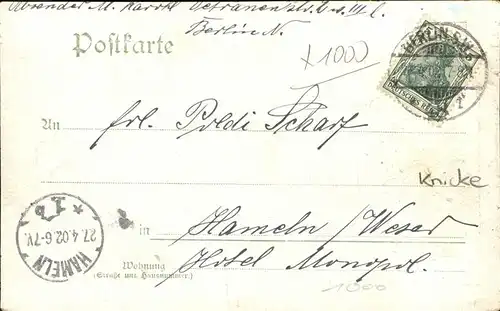 Absender M. b. III l.
Berlin N.
Postkarte
x 1000
BERLIN
DEUTSCHES REICH
An
Frl. Poldi Scharf
Knicke
in Hameln / Weser
HAMELN
27.4.02.6-7V.
* 1b
Wohnung
(Straße und Hausnummer.)
Hotel Monopol.
1000